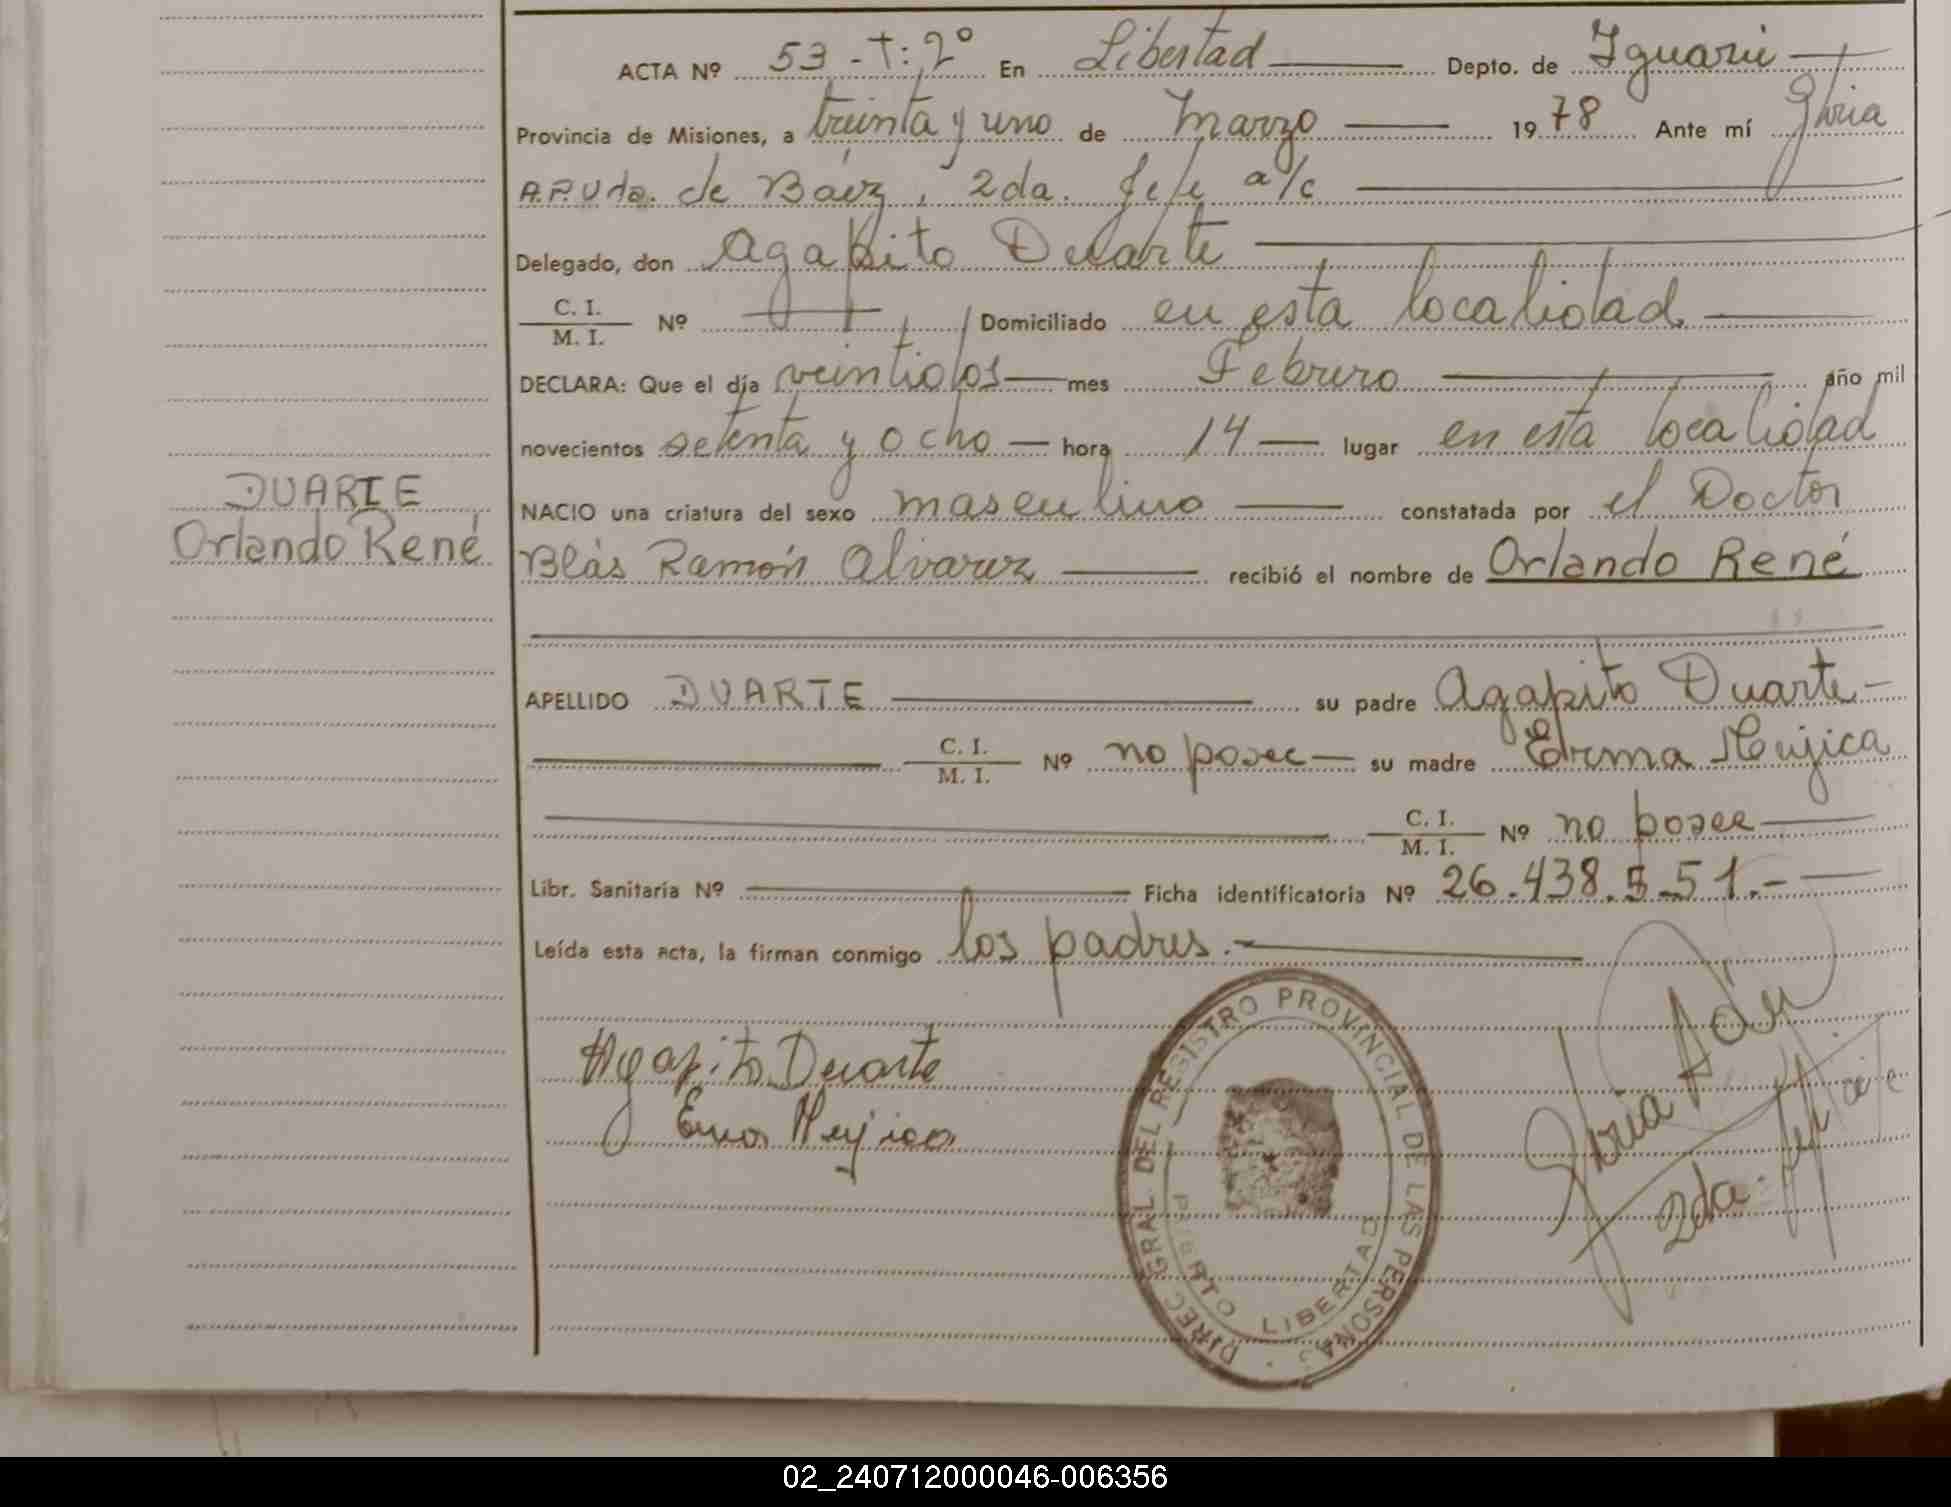 ACTA Nº 53 - T: 2º En Libertad Depto. de Iguazú
Provincia de Misiones, a treinta y uno de Marzo 1978 Ante mí Gloria
A.P.Vda. de Báez, 2da. Jefe a/c
Delegado, don Agapito Duarte
C. I. / M. I. Nº Domiciliado en esta localidad.
DECLARA: Que el día veintidos mes Febrero año mil
novecientos setenta y ocho hora 14 lugar en esta localidad
DUARTE
NACIO una criatura del sexo masculino constatada por el Doctor
Orlando René
Blás Ramón Alvarez recibió el nombre de Orlando René
APELLIDO DUARTE su padre Agapito Duarte
C. I. / M. I. Nº no posee su madre Erma Mujica
C. I. / M. I. Nº no posee
Libr. Sanitaria Nº Ficha identificatoria Nº 26.438.551.-
Leída esta acta, la firman conmigo los padres.-
Agapito Duarte
Mujica
Gloria
2da. Jefe
DIREC. GRAL. DEL REGISTRO PROVINCIAL DE LAS PERSONAS
PUERTO LIBERTAD
02_240712000046-006356